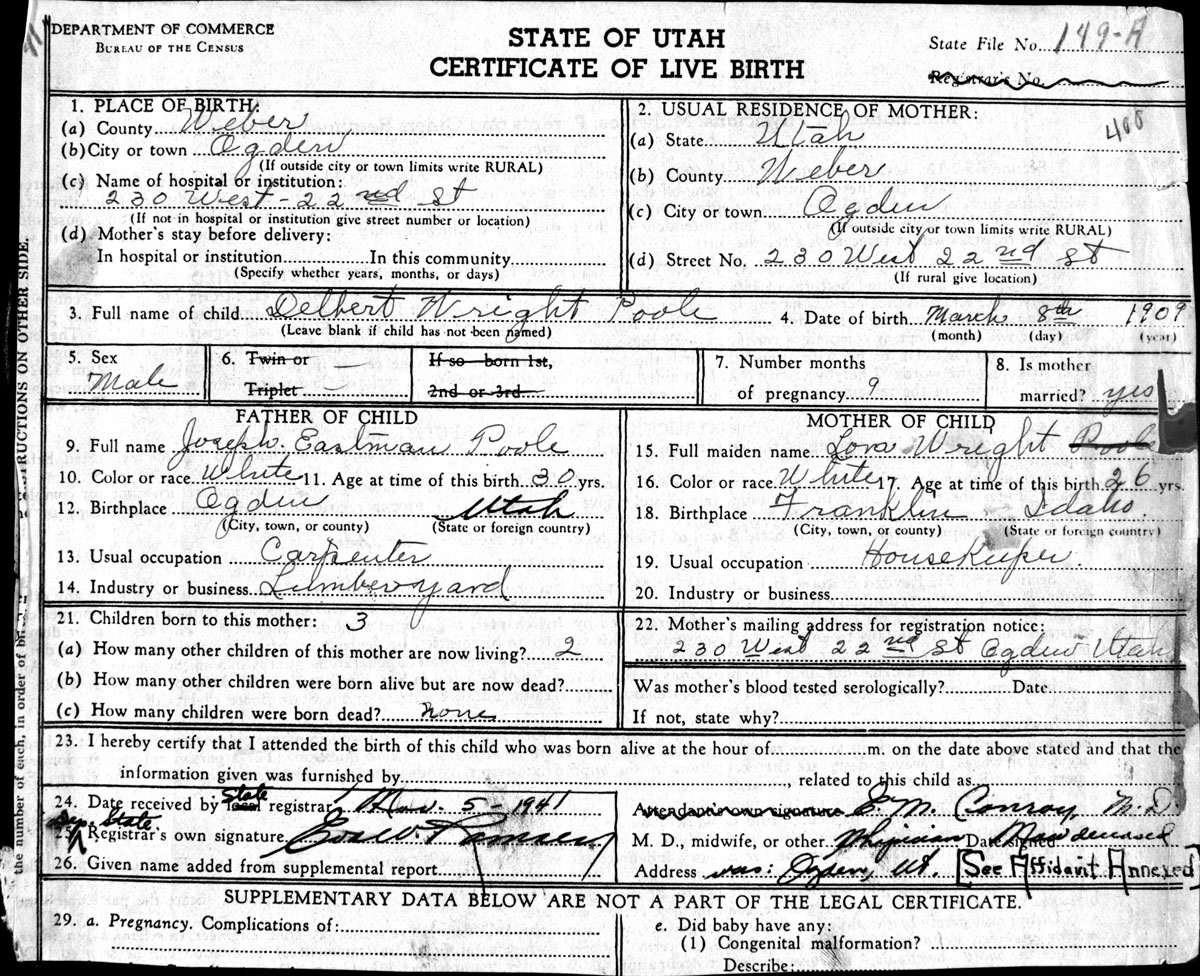 DEPARTMENT OF COMMERCE
BUREAU OF THE CENSUS
STATE OF UTAH
CERTIFICATE OF LIVE BIRTH
State File No. 149-A
Registrar's No.
1. PLACE OF BIRTH:
(a) County Weber
(b) City or town Ogden
(If outside city or town limits write RURAL)
(c) Name of hospital or institution:
230 West - 22nd St
(If not in hospital or institution give street number or location)
(d) Mother's stay before delivery:
In hospital or institution............In this community............
(Specify whether years, months, or days)
2. USUAL RESIDENCE OF MOTHER:
400
(a) State Utah
(b) County Weber
(c) City or town Ogden
(If outside city or town limits write RURAL)
(d) Street No. 230 West 22nd St
(If rural give location)
3. Full name of child Delbert Wright Poole
(Leave blank if child has not been named)
4. Date of birth March 8th 1909
(month) (day) (year)
5. Sex
Male
6. Twin or
Triplet
If so—born 1st,
2nd or 3rd
7. Number months
of pregnancy 9
8. Is mother
married? yes
FATHER OF CHILD
9. Full name Joseph Eastman Poole
10. Color or race White 11. Age at time of this birth 30 yrs.
12. Birthplace Ogden Utah
(City, town, or county) (State or foreign country)
13. Usual occupation Carpenter
14. Industry or business Lumberyard
MOTHER OF CHILD
15. Full maiden name Lora Wright Poole
16. Color or race White 17. Age at time of this birth 26 yrs.
18. Birthplace Franklin Idaho.
(City, town, or county) (State or foreign country)
19. Usual occupation Housekeeper.
20. Industry or business
21. Children born to this mother: 3
(a) How many other children of this mother are now living? 2
(b) How many other children were born alive but are now dead?
(c) How many children were born dead? none
22. Mother's mailing address for registration notice:
230 West 22nd St Ogden Utah
Was mother's blood tested serologically? Date
If not, state why?
23. I hereby certify that I attended the birth of this child who was born alive at the hour of............m. on the date above stated and that the
information given was furnished by............, related to this child as
24. Date received by local State registrar Nov. 5 - 1941
Dep. State
25. Registrar's own signature
26. Given name added from supplemental report
Attendant's own signature E. M. Conroy, M. D.
M. D., midwife, or other Physician Date signed Now deceased
Address was: Ogden, Ut. [See Affidavit Annexed]
SUPPLEMENTARY DATA BELOW ARE NOT A PART OF THE LEGAL CERTIFICATE.
29. a. Pregnancy. Complications of:
e. Did baby have any:
(1) Congenital malformation?
Describe:
the number of each, in order of
INSTRUCTIONS ON OTHER SIDE.